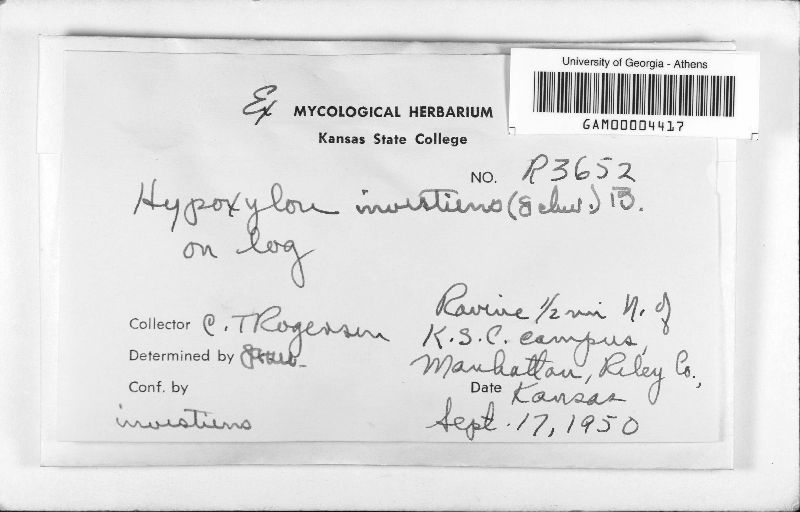 University of Georgia - Athens
GAM00004417
Ex MYCOLOGICAL HERBARIUM
Kansas State College
NO. R3652
Hypoxylon investiens (Schw.) B.
on log
Ravine 1/2 mi N. of
K.S.C. campus,
Manhattan, Riley Co.,
Kansas
Collector C. T Rogerson
Determined by
Conf. by
Date Sept. 17, 1950
investiens